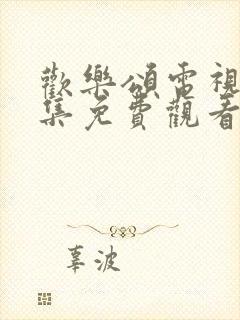 歡樂頌電視
集免費觀看
辜波